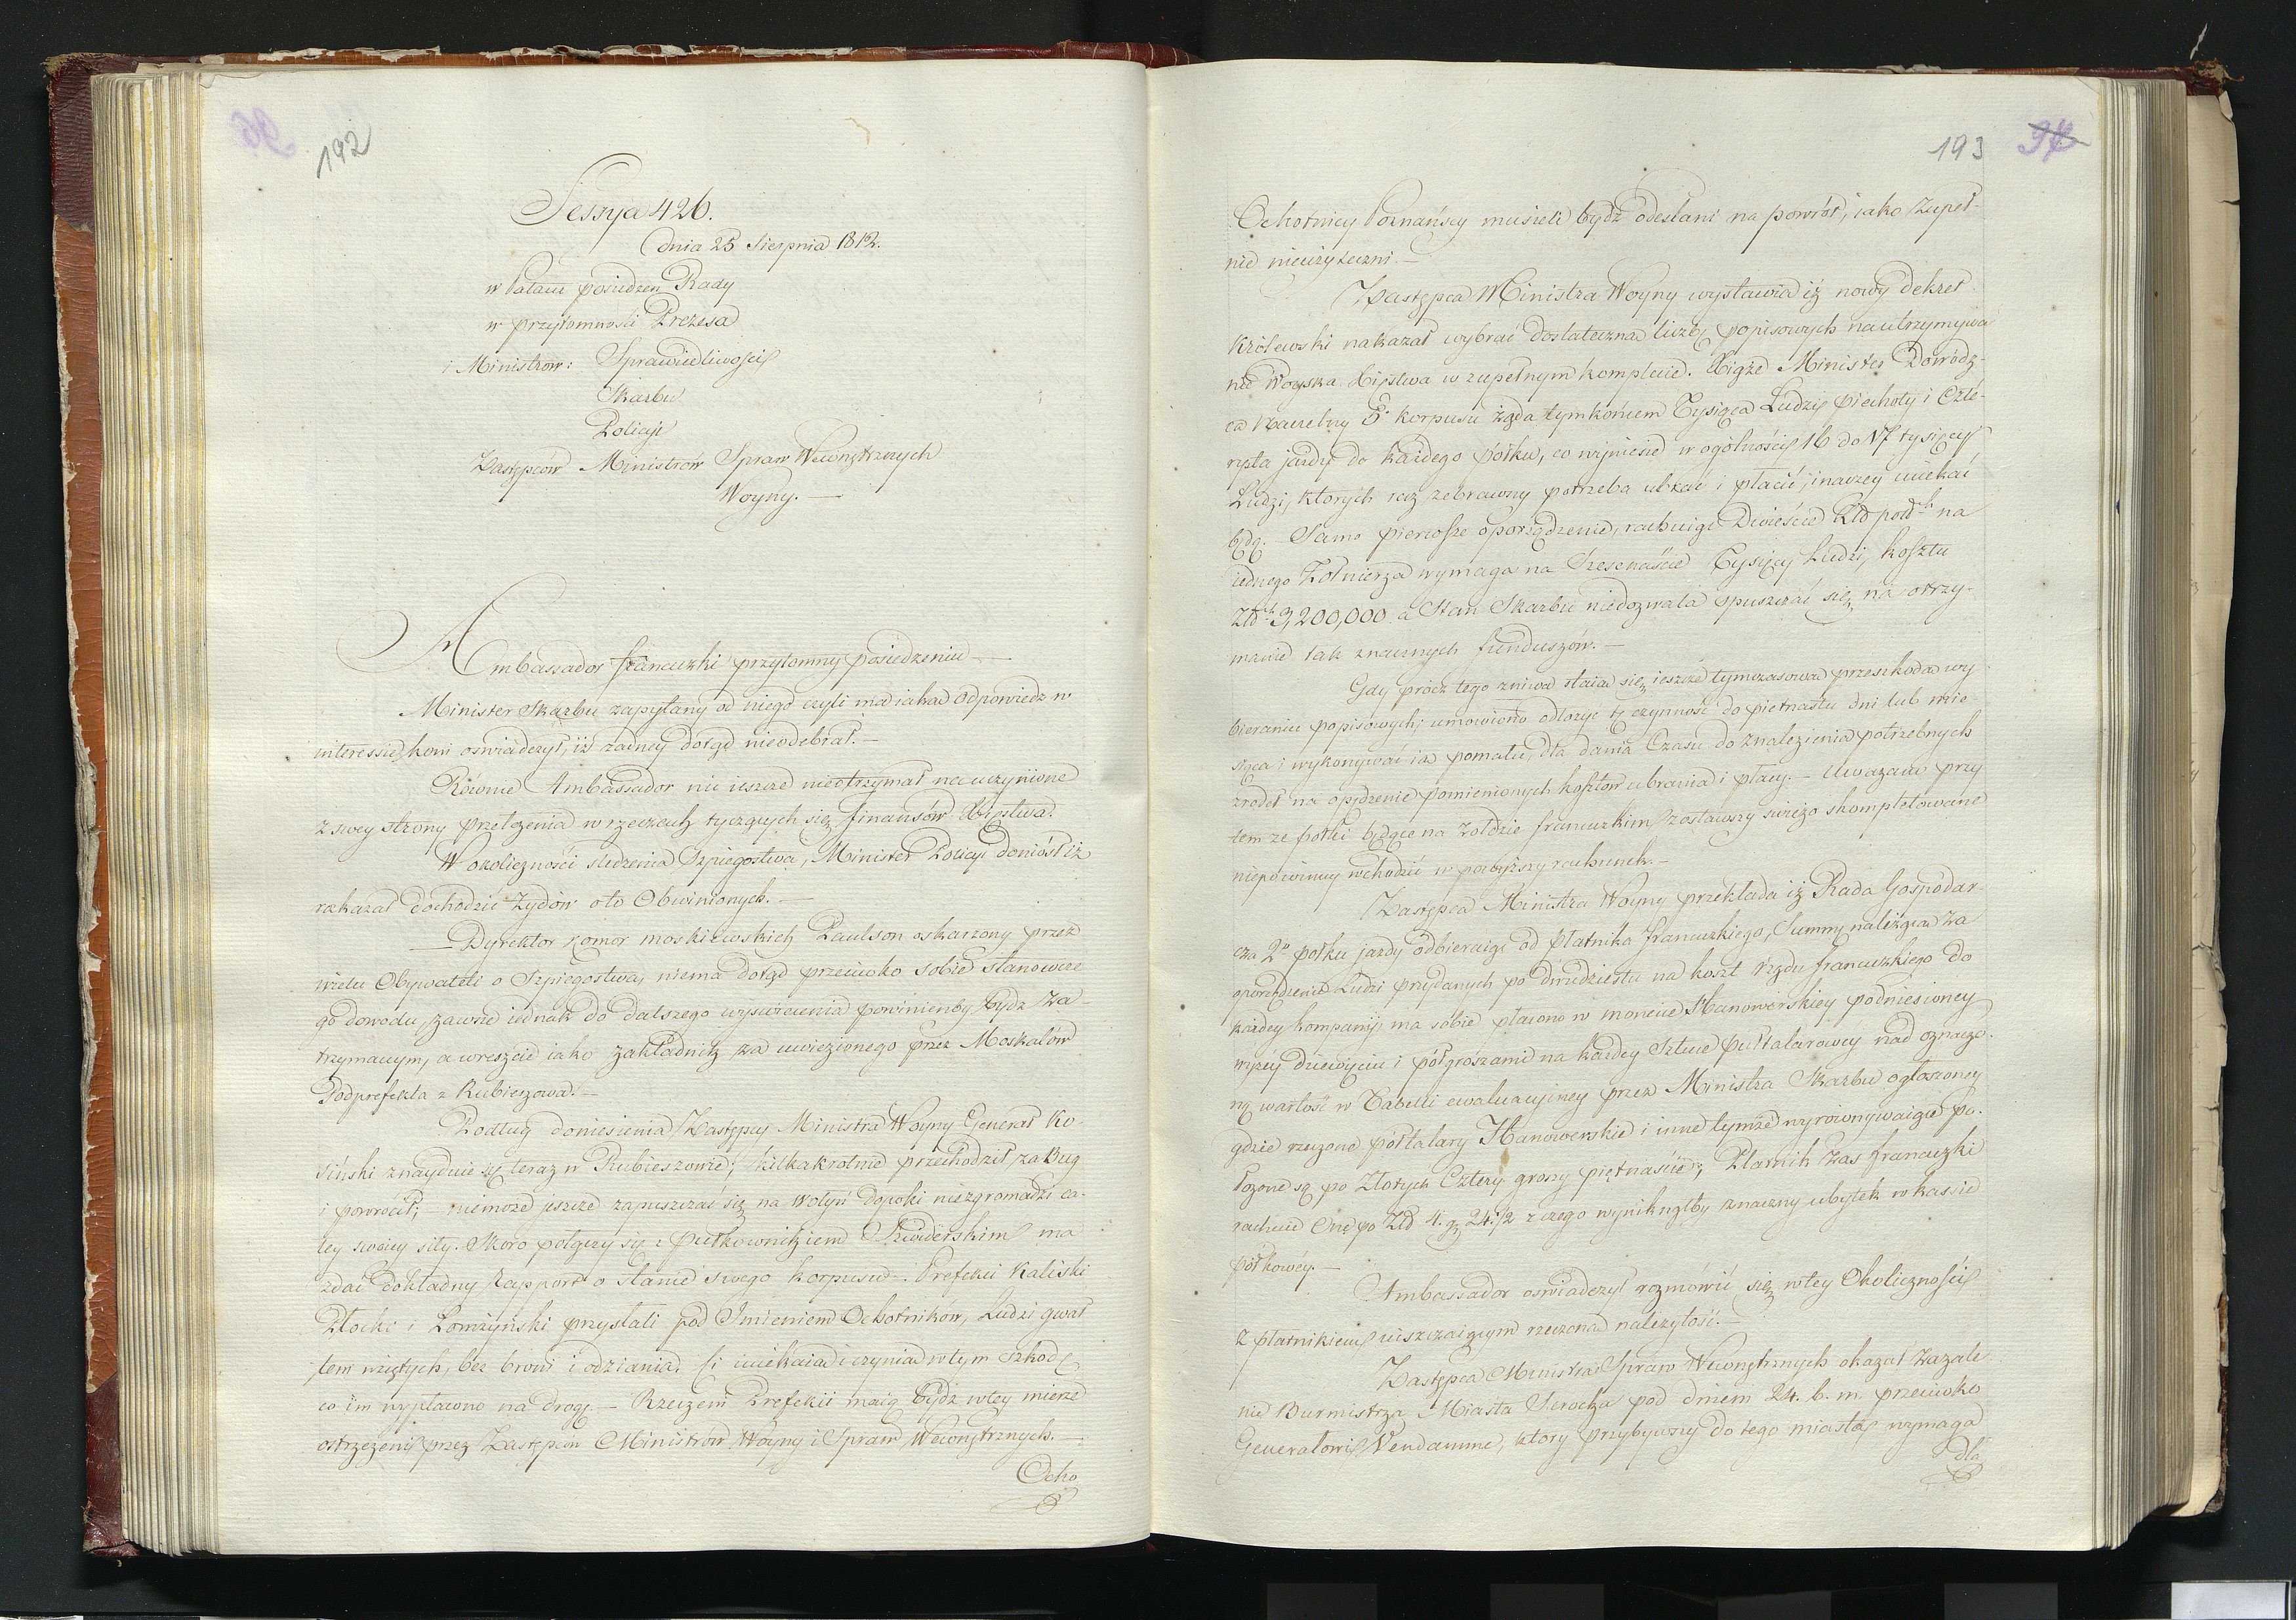 192
Sessya 426.
dnia 25 Sierpnia 1812.
w Pałacu posiedzeń Rady
w przytomności Prezesa
i Ministrów: Sprawiedliwości
Skarbu
Policyi
Zastępców Ministrów Spraw Wewnętrznych
Woyny. —
Ambassador francuzki przytomny posiedzeniu —
Minister Skarbu zapytany od niego czyli ma iaką odpowiedz w
interessie koni oswiadczył, iż żadney dotąd nieodebrał. —
Równie Ambassador nic ieszcze nieotrzymał na uczynione
z swey strony przełożenia w rzeczach tyczących się finansów Xięstwa.
W okoliczności śledzenia Szpiegostwa, Minister Policyi doniósł iż
rozkazał dochodzić Żydów o to Obwinionych. —
— Dyrektor komor moskiewskich Paulson oskarzony przez
wielu Obywateli o Szpiegostwo, niema dotąd przeciwko sobie stanowcze
go dowodu, zawsze iednak do dalszego wyswiecenia powinienby bydz za-
trzymanym, a wreszcie iako zakładnik za uwięzionego przez Moskalów
Podprefekta z Rubieszowa. —
Podług doniesienia Zastępcy Ministra Woyny Generał Ko-
siński znayduie się teraz w Rubieszowie; kilkakrotnie przechodził za Bug
i powrócił; — niemoże jeszcze zapuszczać się na Wołyń dopóki niezgromadzi ca-
łey swoiey siły. Skoro połączy się z Pułkownikiem Zwiderskim ma
zdać dokładny rapport o stanie swego korpusu. — Prefekci Kaliski
Płocki i Łomżyński przysłali pod Imieniem Ochotników, Ludzi gwał
tem wziętych, bez broni i odziania. Ci uciekaią i czynią w tym szkodę
co im wypłacono na drogę. — Rzeczeni Prefekci maią bydz w tey mierze
ostrzeżeni przez Zastępców Ministrów Woyny i Spraw Wewnętrznych. —
Ocho
193 97
Ochotnicy Poznańscy musieli bydź odesłani na powrót, iako zupeł-
nie nieużyteczni. —
Zastępca Ministra Woyny wystawia iż nowy dekret
Królewski nakazał wybrać dostateczną liczbę popisowych na utrzymywa
nie Woyska Xięstwa w zupełnym komplecie. Xiąże Minister Dowódz-
ca Naczelny 5º korpusu żąda tym końcem Tysiąca Ludzi piechoty i Czte-
rysta jazdy do każdego półku, co wyniesie w ogólności 16 do 17 tysięcy
Ludzi, których raz zebrawszy potrzeba ubrać i płacić, inaczey uciekać
będą. Samo pierwsze oporządzenie, rachuiąc Dwieście Złp połs.ch na
iednego Żołnierza wymaga na Szesnaście Tysięcy Ludzi, kosztu
Złt. 3,200,000 a Stan Skarbu niedozwala spuszczać się na otrzy-
manie tak znacznych funduszów. —
Gdy prócz tego żniwa staią się ieszcze tymczasową przeszkodą wy
bieraniu popisowych; umówiono odłożyć tę czynność do piętnastu dni lub mie-
siąca i wykonywać ią pomału, dla dania Czasu do znalezienia potrzebnych
zrodeł na opędzenie pomienionych kosztów ubrania i płacy. — Uważano przy
tem że półki będące na żołdzie francuzkim zostawszy świeżo skompletowane
niepowinny wchodzić w powyższy rachunek. —
Zastępca Ministra Woyny przekłada iż Rada Gospodar-
cza 2º półku jazdy odbieraiąc od Płatnika francuzkiego, Summę należącą za
oporządzenie Ludzi przydanych po dwudziestu na koszt rządu francuzkiego do
każdey kompanii, ma sobie płacono w monecie Hanowerskiey podniesioney
wyżey dziewięciu i półgroszami na każdey Sztuce półtalarowey nad oznaczo-
ną wartość w Tabelli ewaluacyiney przez Ministra Skarbu ogłoszoney
gdzie rzeczone półtalary Hanowerskie i inne tymże wyrównywaiące po-
łożone są po Złotych Cztery groszy piętnaście; Płatnik zas francuzki
rachuie One po Złp 4. gr 24 1/2 z czego wyniknąłby znaczny ubytek w kassie
półkowéy. —
Ambassador oświadczył rozmówić się w tey Okoliczności
z płatnikiem uiszczaiącym rzeczoną należytość. —
Zastępca Ministra Spraw Wewnętrznych okazał zażale
nie Burmistrza Miasta Serocka pod dniem 24. b. m. przeciwko
Generałowi Vendamme, ktory przybywszy do tego miasta wymaga
dla